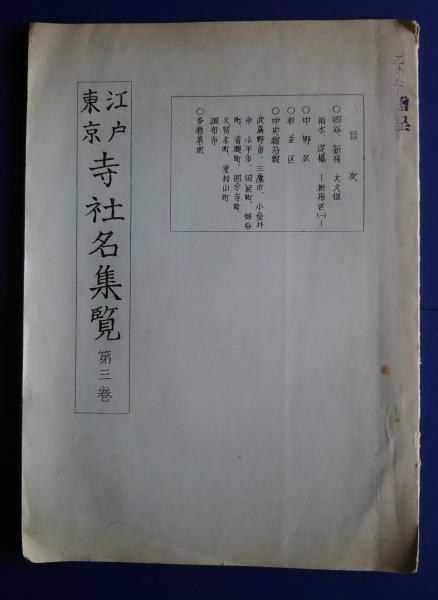 目次
○四谷、新宿、大久保、
柏木、淀橋 ―新宿区(一)―
○中野区
○杉並区
○中央線沿線
武蔵野市、三鷹市、小金井
市、小平市、田無町、保谷
町、清瀬町、国分寺町
久留米町、東村山町
調布市
○多磨墓地
江戸
東京
寺社名集覧 第三巻